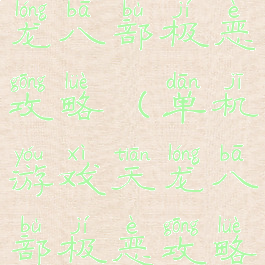 lóng bā bù jí è
龙八部极恶
gōng lüè dān jī
攻略(单机
yóu xì tiān lóng bā
游戏天龙八
bù jí è gōng lüè
部极恶攻略